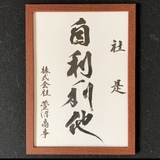 社是
自利利他
株式会社 萱沼商事